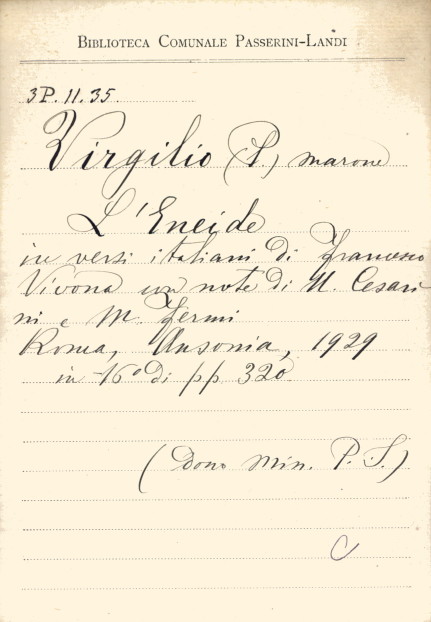 BIBLIOTECA COMUNALE PASSERINI-LANDI
3P. 11. 35.
Virgilio (P.) Marone
L'Eneide
in versi italiani di Francesco
Vivona con note di N. Cesari-
ni e M. Fermi
Roma, Ausonia, 1929
in 16° di pp 320
(Dono Min. P. S.)
C